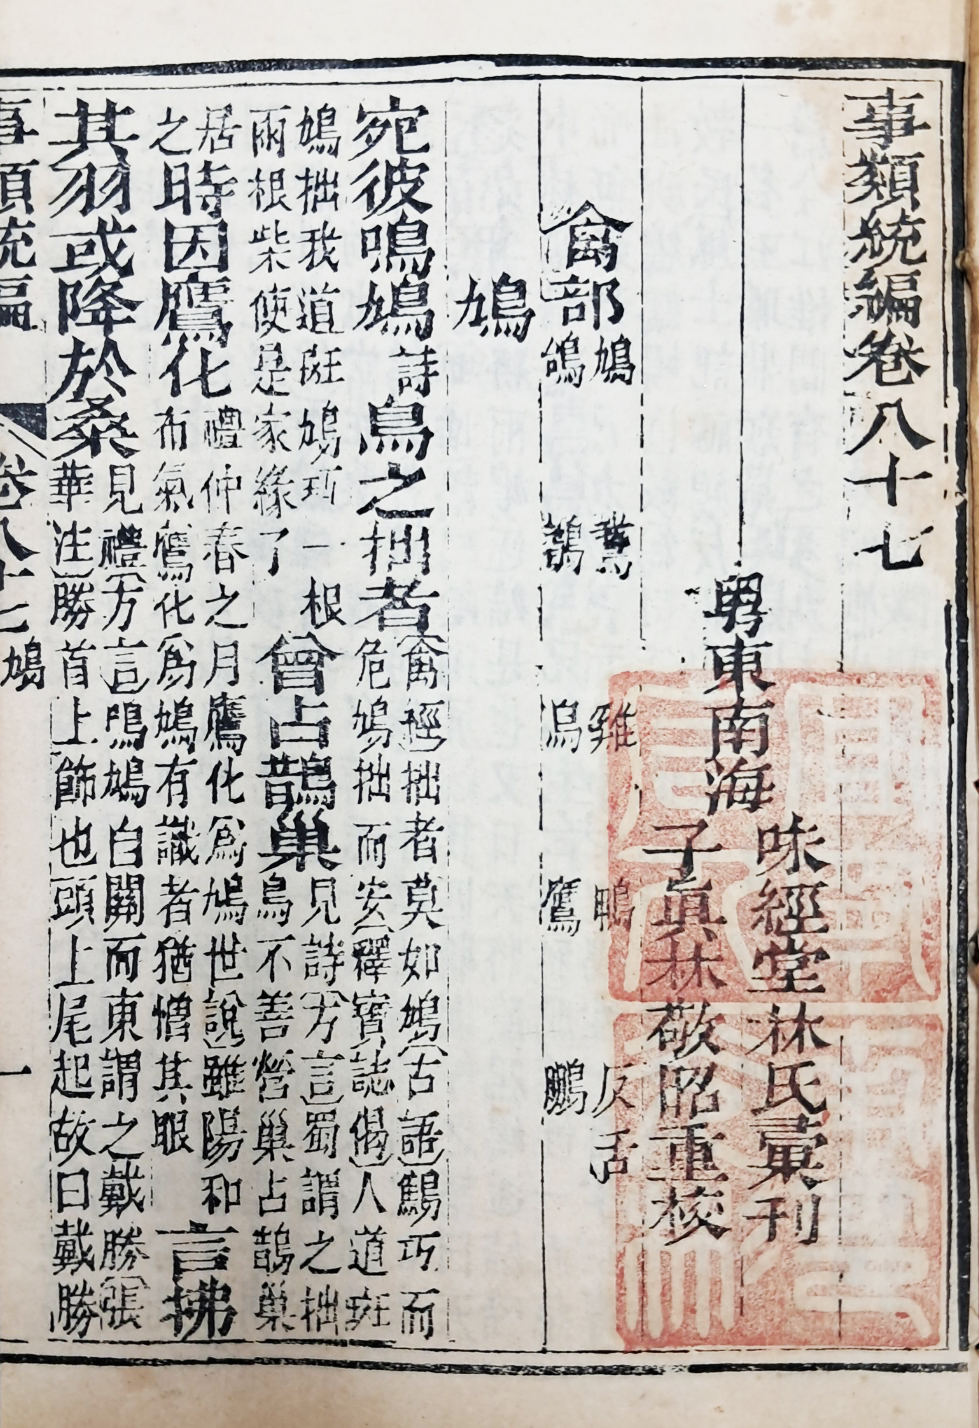 事類統編卷八十七
粵東南海
味經堂林氏彙刊
子真林敬昭重校
禽部
鳩 鶩 雞 鴨 反舌
鴿 鵲 烏 鷹 鵬
鳩
宛彼鳴鳩詩鳥之拙者禽經拙者莫如鳩古語鷃巧而
危鳩拙而安釋寶誌偈人道斑
鳩拙我道斑鳩巧一根
雨根柴便是家緣了曾占鵲巢見詩方言蜀謂之拙
鳥不善營巢占鵲巢
居
之時因鷹化禮仲春之月鷹化為鳩世說雖陽和
布氣鷹化為鳩有識者猶憎其眼言拂
其羽或降於桑見禮方言鳲鳩自關而東謂之戴勝張
華注勝首上飾也頭上尾起故曰戴勝
事類統編
卷八十七鳩
一